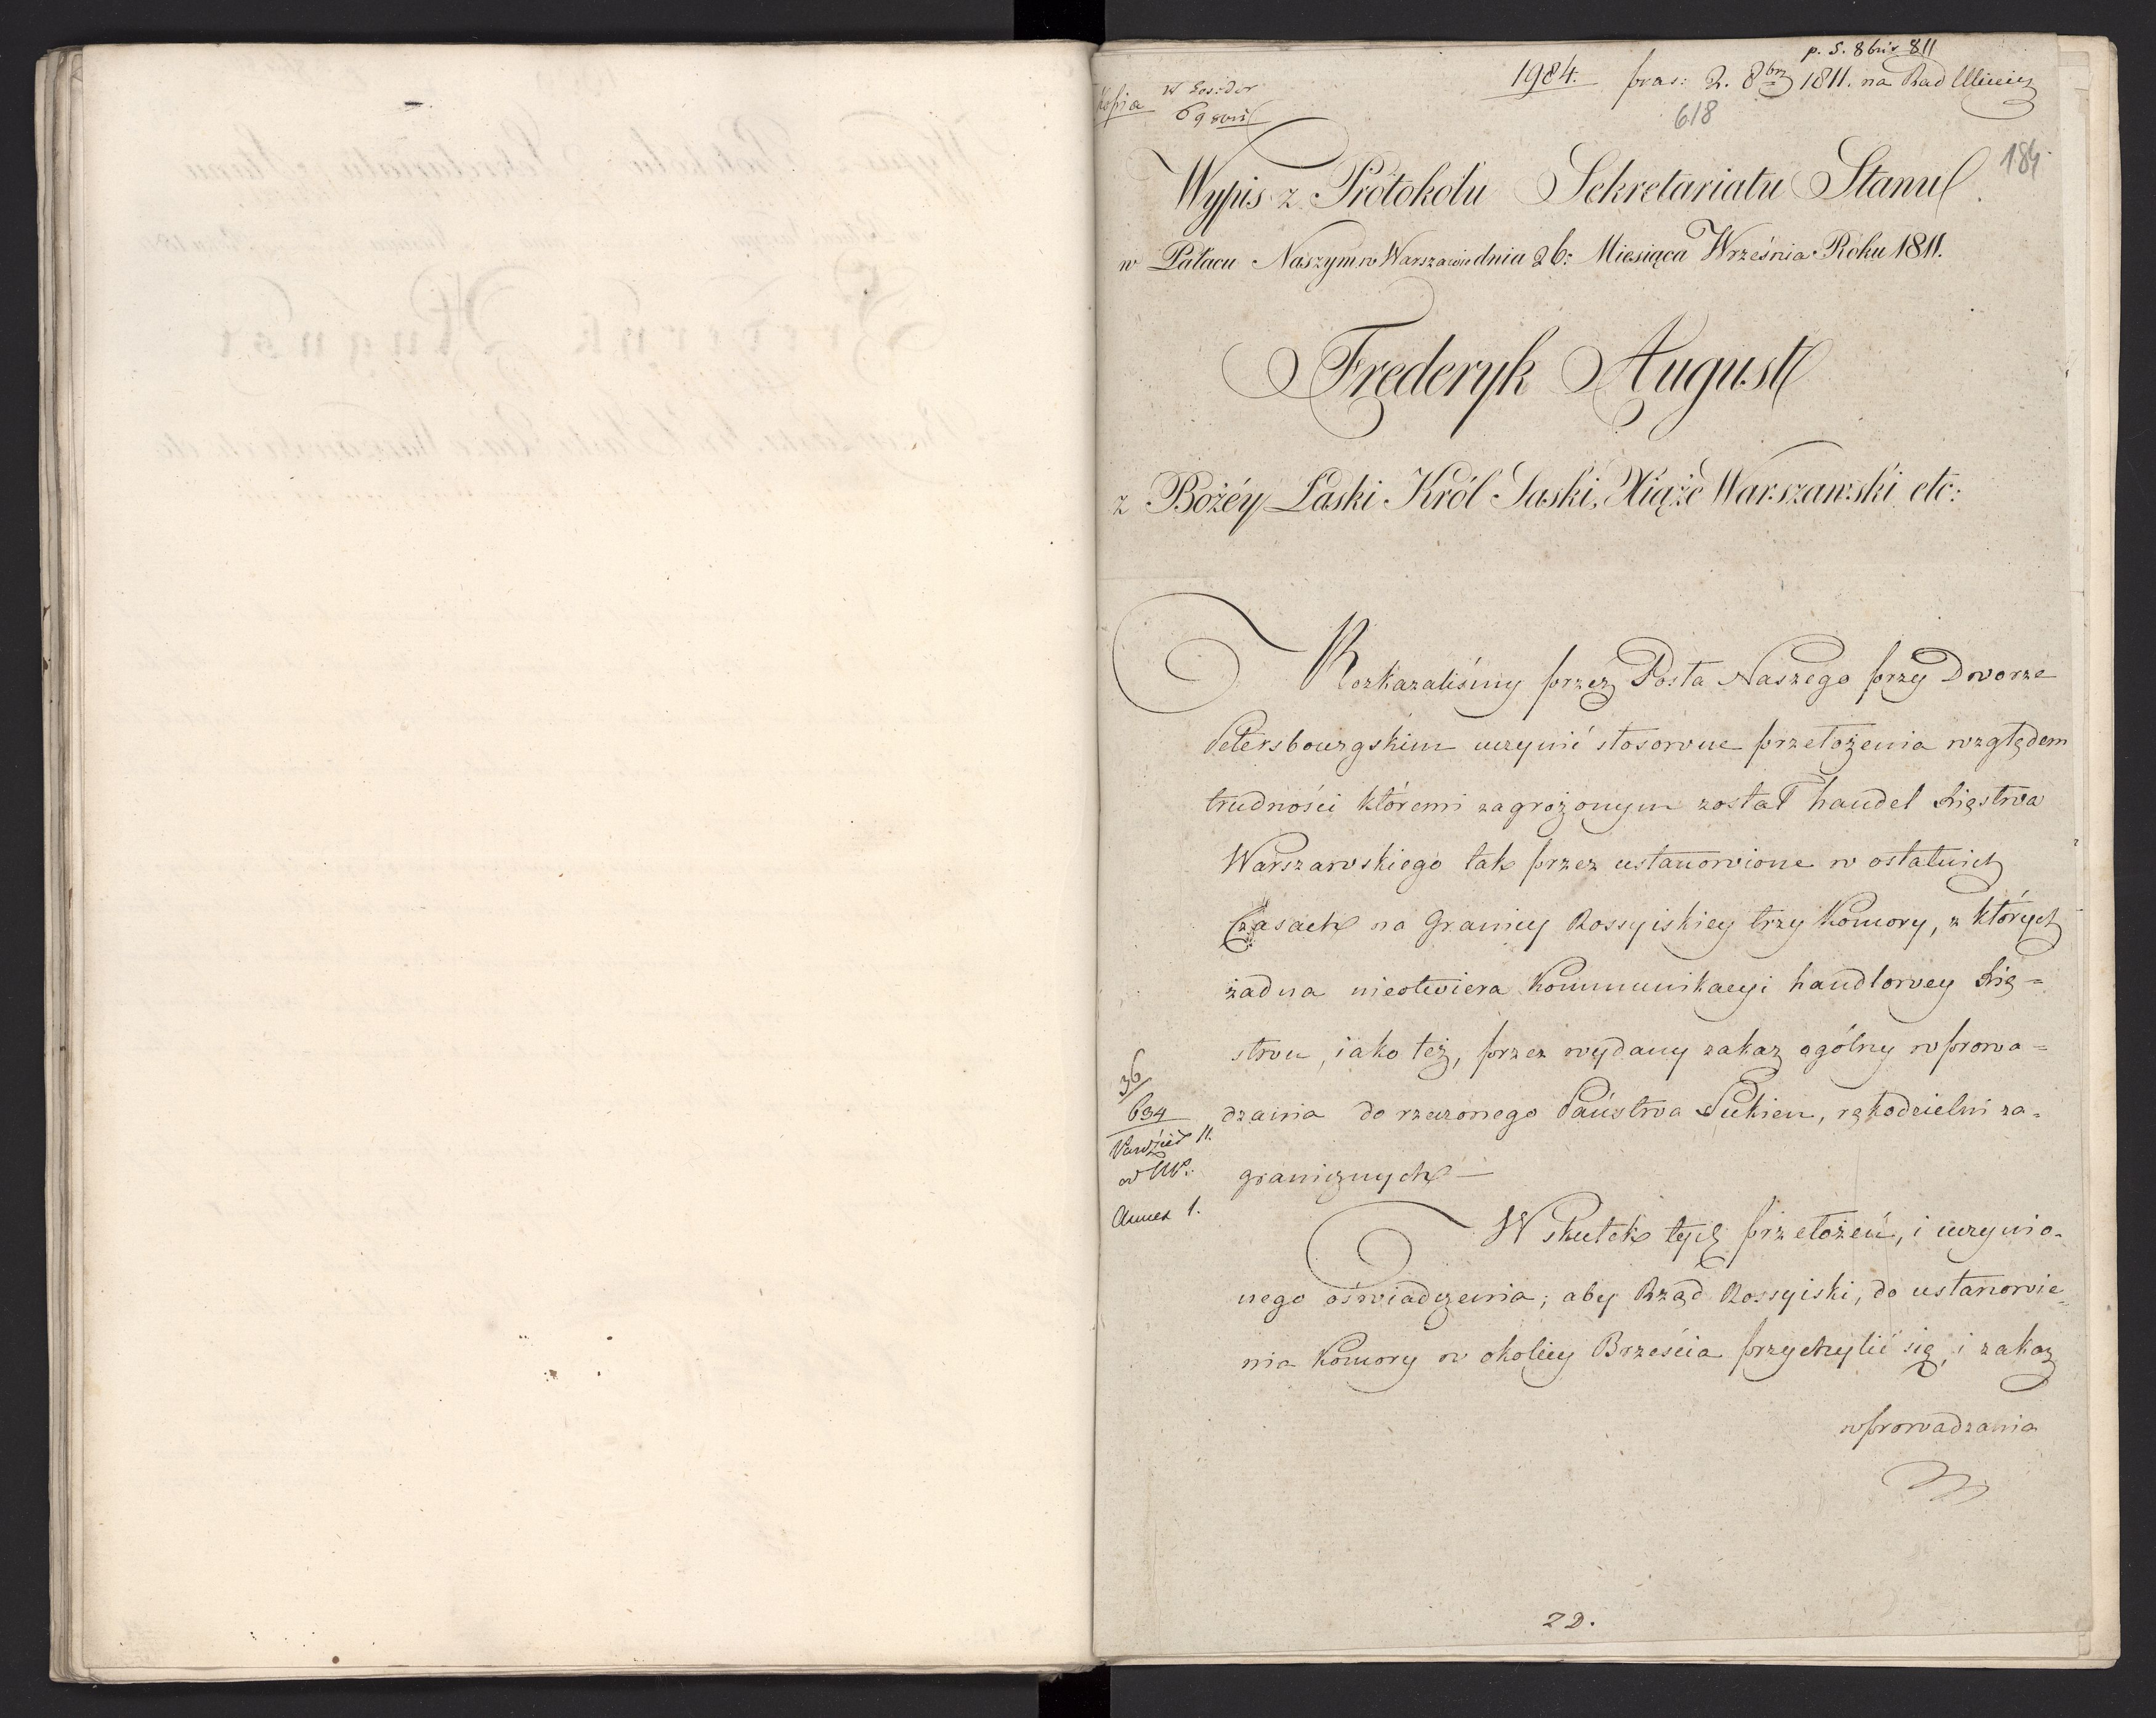 p. 5. 8bris 811
1984. pras: 2. 8br 1811. na Rad Minis
Kopia
618
184
Wypis z Protokołu Sekretariatu Stanu
w Pałacu Naszym w Warszawie dnia 26: Miesiąca Września Roku 1811.
Frederyk August
z Bożéy Łaski Król Saski, Xiąże Warszawski etc:
Rozkazaliśmy przez Posła Naszego przy Dworze
Petersbourgskim uczynić stosowne przełożenia względem
trudności któremi zagrożonym został handel Xięstwa
Warszawskiego tak przez ustanowione w ostatnich
Czasach na Granicy Rossyiskiey trzy Komory, z których
żadna nieotwiera Kommunikacyi handlowey Xię=
stwu, iako też, przez wydany zakaz ogólny wprowa=
dzania do rzeczonego Państwa Sukien, rękodzielni za=
granicznych —
36
634
11.
Annex 1.
W skutek tych przełożeń, i uczynio=
nego oświadczenia; aby Rząd Rossyiski, do ustanowie=
nia Komory w okolicy Brześcia przychylić się, i zakaz
wprowadzania
22.